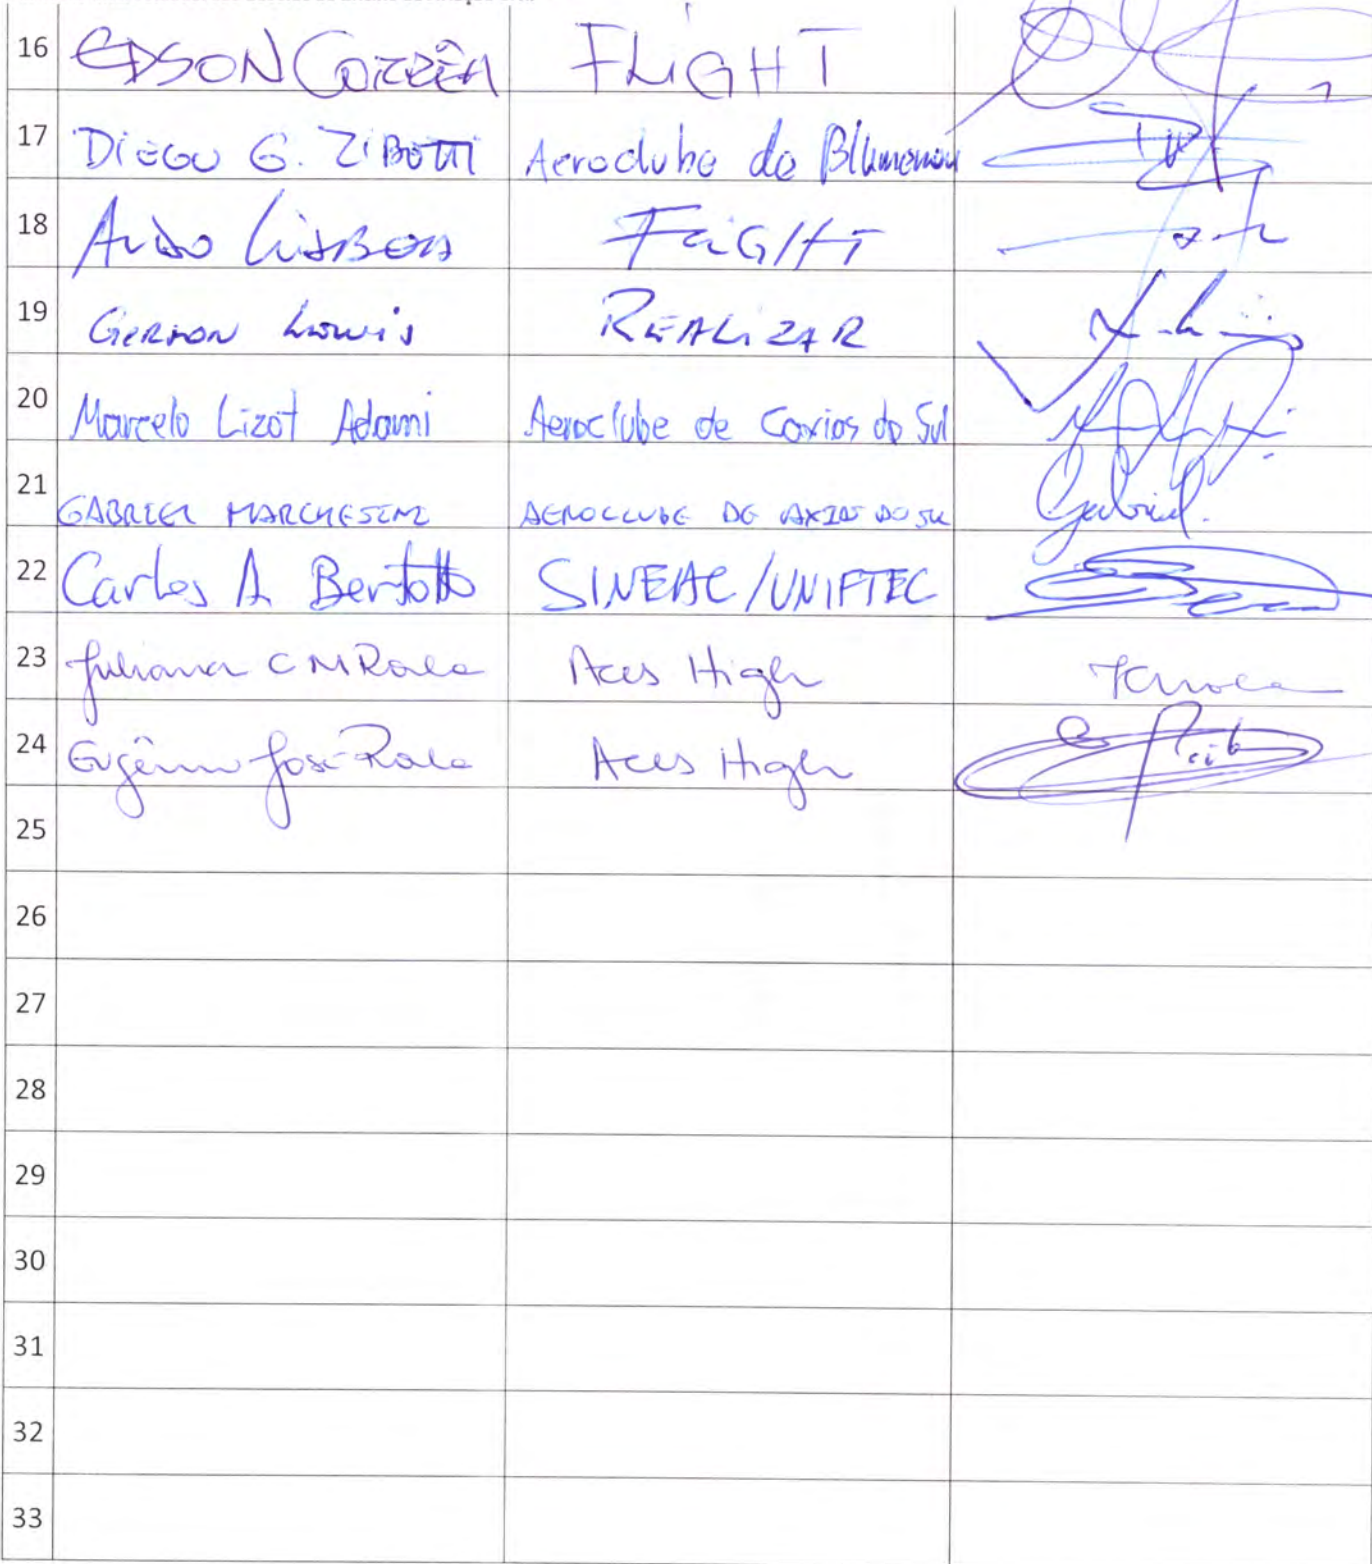 16 EDSON CORRÊA FLIGHT
17 Diego G. Zibotti Aeroclube de Blumenau
18 Aldo Lisboa FLIGHT
19 GERSON REALIZAR
20 Marcelo Lizot Adami Aeroclube de Caxias do Sul
21 GABRIEL MARCHESINI AEROCLUBE DE CAXIAS DO SUL Gabriel.
22 Carlos A Bertotto SINEAC/UNIFTEC
23 Juliana C M Aces High
24 Eugênio José Aces High
25
26
27
28
29
30
31
32
33